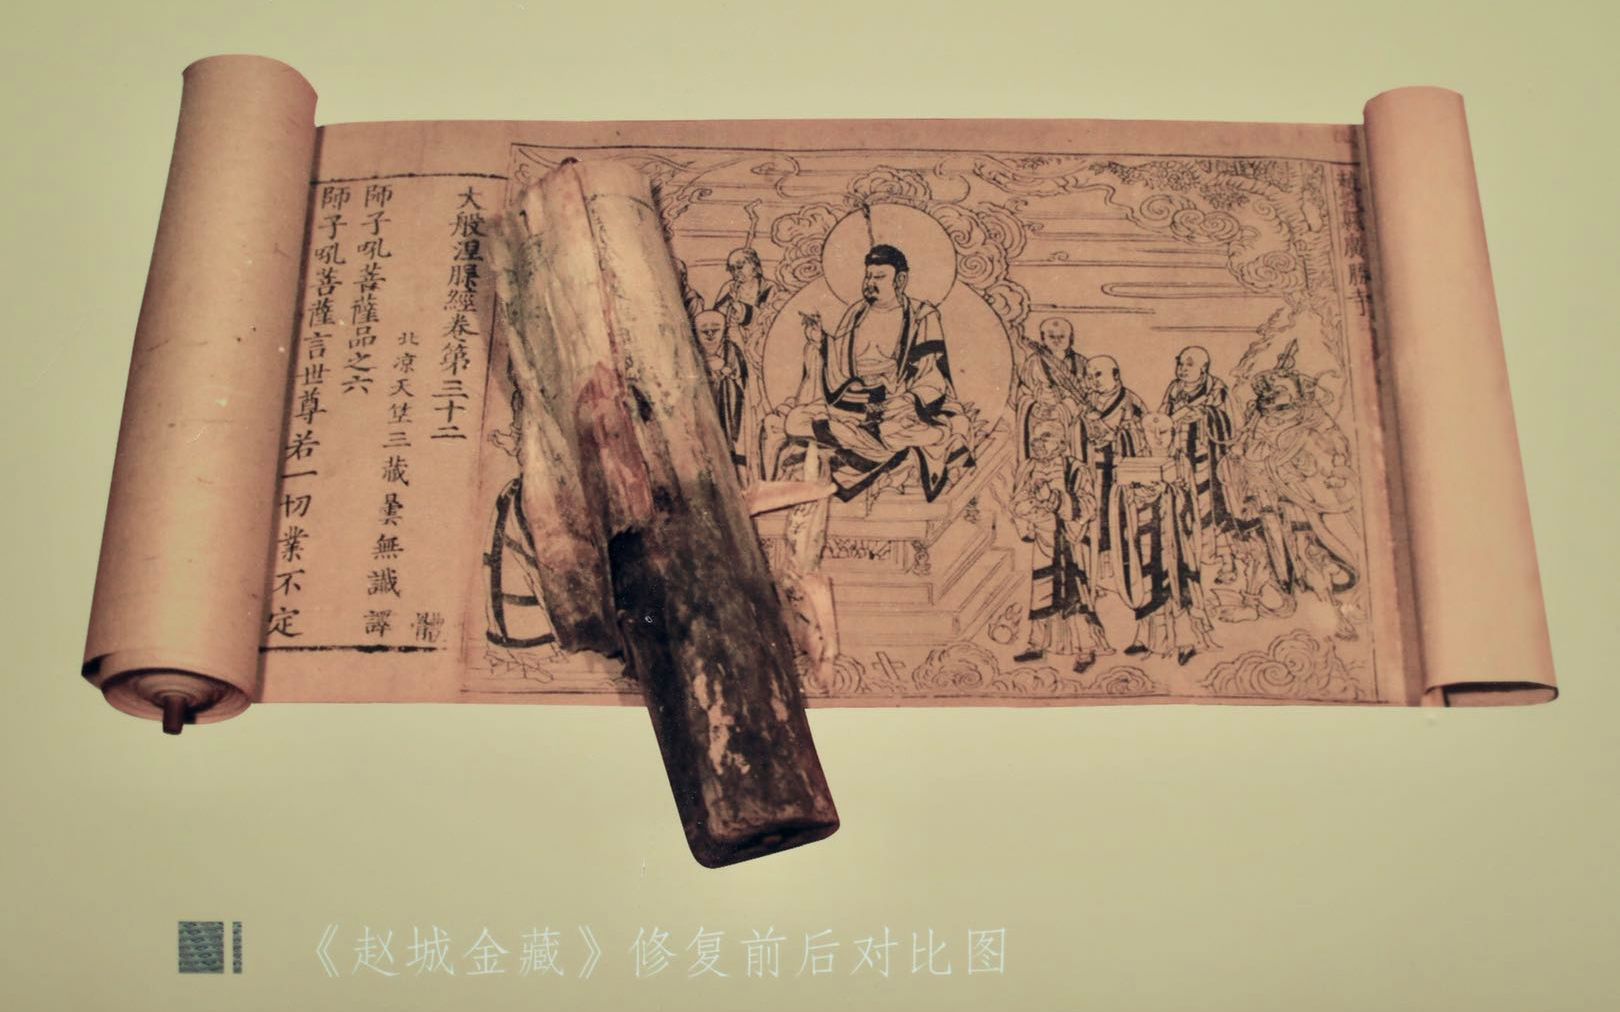 趙城縣廣勝寺
大般涅槃經卷第三十二
體
北凉天竺三藏曇無讖譯
師子吼菩薩品之六
師子吼菩薩言世尊若一切業不定
《赵城金藏》修复前后对比图